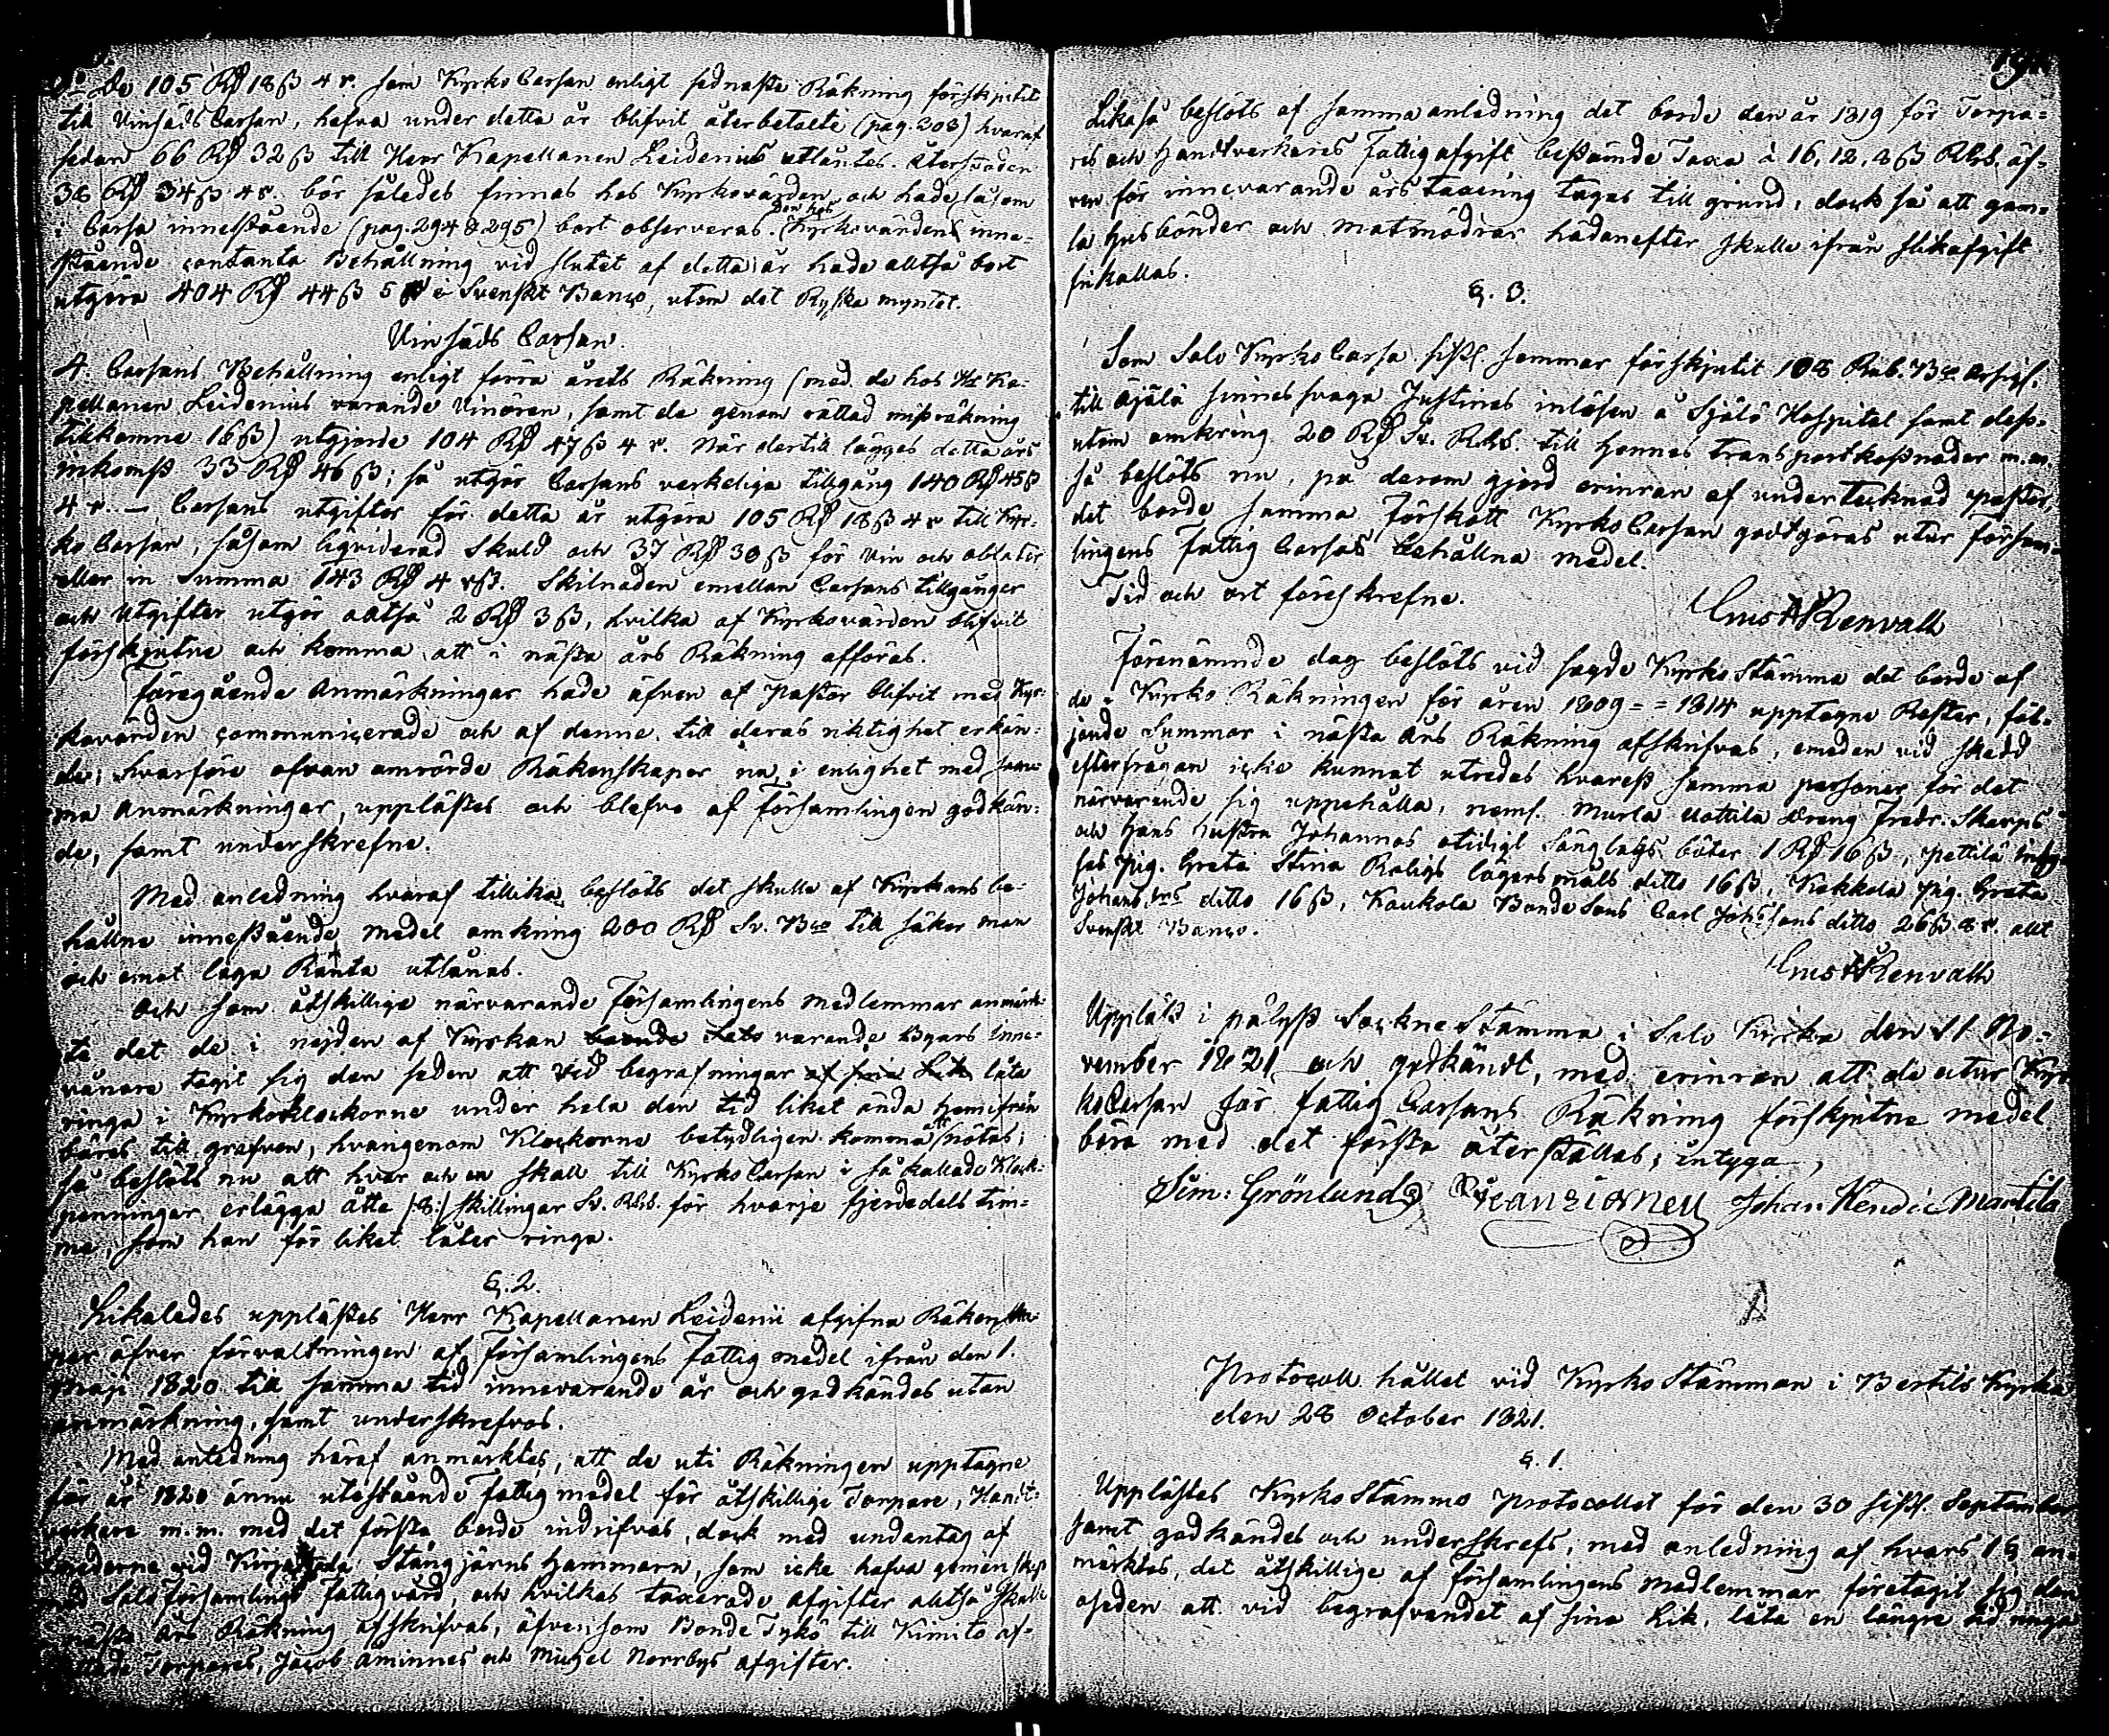 De 105 Rd 18 ß 4 r. som Kyrko Cassan enligt sednaste Räkning förskjutit
till Vinsäds Cassan, hafva under detta år blifvit återbetalte (pag. 308) hvaraf
sedan 66 Rd 32 ß till Herr Kapellanen Leidenius utlåntes. Återstoden
38 Rd 34 ß 4 r. bör således finnas hos Kyrkovärden och hade såsom
i Cassa innestående (pag. 294 & 295) bort observeras. Den hos Kyrkovärden inne-
stående contanta Behållning vid slutet af detta år hade alltså bort
utgöra 404 Rd 44 ß 5 r Svenskt Banco, utom det Ryska myntet.
Vinsäds Cassan.
4. Cassans Behållning enligt förra årets Räkning (med de hos Hr Ka-
pellanen Leidenius varande Vinören, samt de genom rättad missräkning
tillkomne 16 ß) utgjorde 104 Rd 47 ß 4 r. När dertill lägges detta års
inkomst 33 Rd 46 ß; så utgör Cassans verkeliga tillgång 140 Rd 45 ß
4 r. — Cassans utgifter för detta år utgöra 105 Rd 18 ß 4 r till Kyr-
ko Cassan, såsom liqviderad Skuld och 37 Rd 30 ß för Vin och oblater
eller in Summa 143 Rd 4 rst. Skilnaden emellan Cassans tillgångar
och Utgifter utgör alltså 2 Rd 3 ß, hvilka af Kyrkovärden blifvit
förskjutne och komma att i nästa års Räkning afföras.
Föregående Anmärkningar hade äfven af Pastor blifvit med Kyr-
kovärden communicerade och af denne till deras riktighet erkän-
de; hvarföre ofvan omrörde Räkenskaper nu i enlighet med sam-
ma Anmärkningar, upplästes och blefvo af Församlingen godkän-
de, samt underskrefne.
Med anledning hvaraf tillika beslöts det skulle af Kyrkans be-
hållne innestående medel omkring 200 Rd Sv. Bco till säker man
och emot laga Ränta utlånas.
Och som åtskillige närvarande Församlingens medlemmar anmärk-
te det de i nejden af Kyrkan boende varande Byars Inne-
vånare tagit sig den seden att vid begrafningar af sina Lik låta
ringa i Kyrkoklockorne under hela den tid liket ända hemifrån
bäres till grafven, hvarigenom Klockorne betydligen komma att nötas;
så beslöts nu att hvar och en skall till Kyrko Cassan i så kallade Klock-
penningar erlägga åtta /:8:/ skillingar Sv. Rgs. för hvarje fjerdedels tim-
me, som han för liket låter ringa.
§. 2.
Likaledes upplästes Herr Kapellanen Leidenii afgifna Räkenska-
per öfver förvaltningen af Församlingens Fattig medel ifrån den 1.
Maji 1820 till samma tid innevarande år och godkändes utan
anmärkning, samt underskrefvos.
Med anledning häraf anmärktes, att de uti Räkningen upptagne
för år 1820 ännu utestående Fattig medel för åtskillige Torpare, Handt-
verkare m.m. med det första borde indrifvas, dock med undantag af
smederne vid Kirjakkala Stångjärns Hammare, som icke hafva gemenskap
med Salo församlings Fattigvård, och hvilkas taxerade afgifter alltså skulle
i nästa års Räkning afskrifvas, äfvensom Bonde Tykö till Kimito af-
Torpares, Jacob Åminnes och Michel Norrbys afgifter.
Likaså beslöts af samma anledning det borde den år 1819 för Torpa-
res och Handtverkares Fattig afgift bestämde Taxa à 16, 12, 8 ß Rgs. äf-
ven för innevarande års taxering tagas till grund, dock så att gam-
la Husbönder och matmödrar hädanefter skulle ifrån slik afgift
frikallas.
§. 3.
Som Salo Kyrko Cassa sistl. sommar förskjutit 108 Rub. Bco Assign.
till Äijälä sinnessvaga Justinas inlösen å Själö Hospital samt dess-
utom omkring 20 Rd Sv. Rgs. till hennes transportkostnader m.m.
så beslöts nu, på derom gjord erinran af undertecknad Pastor,
det borde samma Förskott Kyrko Cassan godtgöras utur Försam-
lingens Fattig Cassas behållna medel.
Tid och ort föreskrefne.
Gust. Renvall
Förenämnde dag beslöts vid sagde Kyrko Stämma det borde af
de i Kyrko Räkningen för åren 1809 = = 1814 upptagne Rester, föl-
jande Summor i nästa års Räkning afskrifvas, emedan vid skedd
efterfrågan icke kunnat utredas hvarest samma personer för det
närvarande sig uppehålla, neml. Murla Uottila Dreng Fredr. Skarps
och Hans Hustru Johannas otidigt Sänglags böter 1 Rd 16 ß, Pettilä
Pig. Greta Stina Roligs lägersmåls ditto 16 ß, Kokkola Pig. Greta
Johans drs ditto 16 ß, Kaukola Bonde Sons Carl Johssons ditto 26 ß 8 r. allt
Svenskt Banco.
Gust. Renvall
Uppläst i pålyst Sockne Stämma i Salo Kyrka den 11 No-
vember 1821 och godkändt, med erinran att de utur Kyr-
ko Cassan för fattig Cassans Räkning förskjutne medel
böra med det första återställas; intyga,
Sim: Grönlund Johan Hendric Martila
Protocoll hållet vid Kyrko Stämman i Bertils Kyrka
den 28 October 1821.
§. 1.
Upplästes Kyrko Stämmo Protocollet för den 30 sistl. September
samt godkändes och underskrefs, med anledning af hvars 1 § an-
märktes, det åtskillige af Församlingens medlemmar företagit sig den
oseden att vid begrafvandet af sina Lik, låta en längre tid ringa